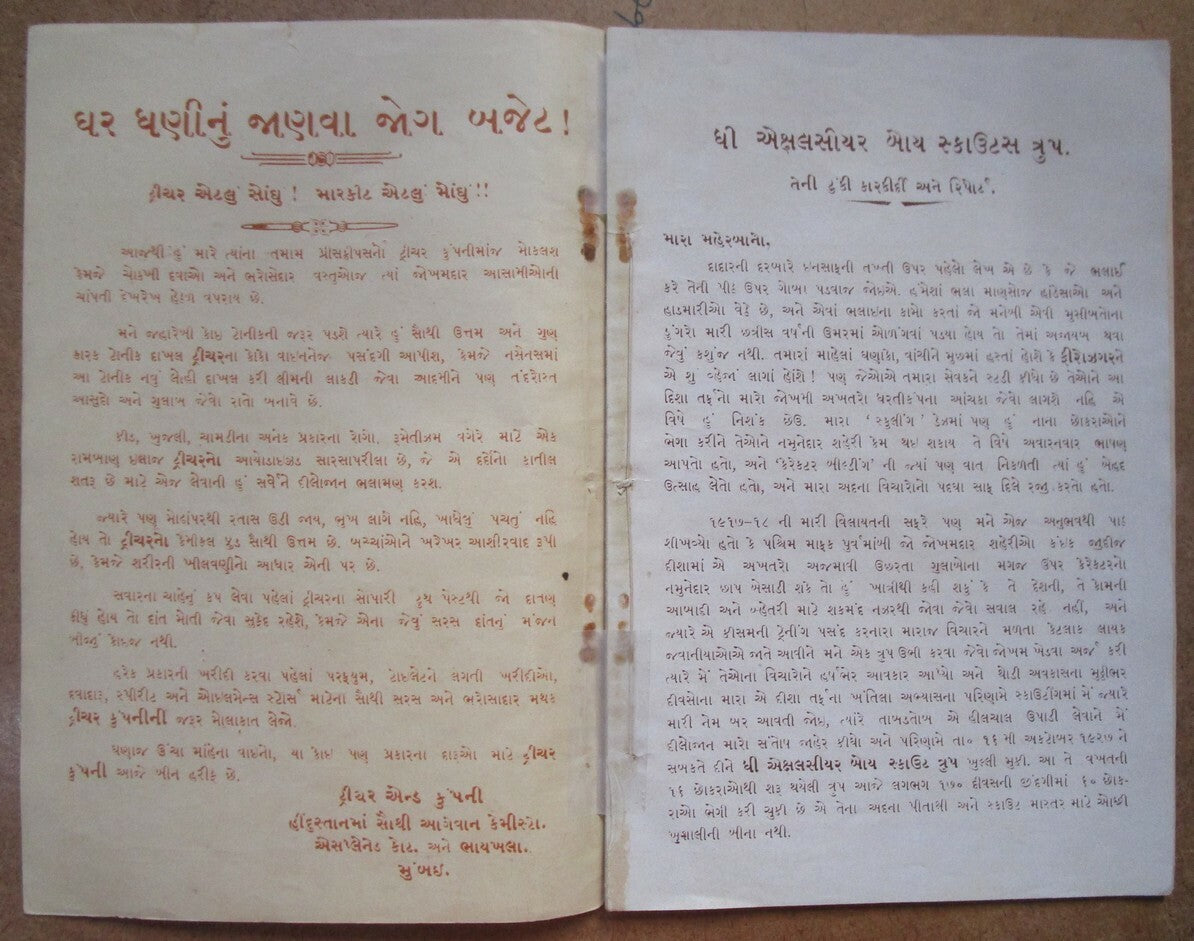 ઘર ધણીનું જાણવા જોગ બજેટ!
ટ્રીચર એટલું સોંઘુ! મારકીટ એટલું મોંઘું!!
આજથી હું મારે ત્યાંના તમામ પ્રીસક્રીપસનો ટ્રીચર કુંપનીમાંજ મોકલશ
કેમજે ચોકખી દવાઓ અને ભરોસેદાર વસ્તુઓજ ત્યાં જોખમદાર આસામીઓની
ચાંપતી દેખરેખ હેઠળ વપરાય છે.
મને જ્હારેબી કોઇ ટોનીકની જરૂર પડશે ત્યારે હું સૌથી ઉત્તમ અને ગુણ
કારક ટોનીક દાખલ ટ્રીચરના કોકા વાઇનનેજ પસંદગી આપીશ, કેમજે નસેનસમાં
આ ટોનીક નવું લોહી દાખલ કરી લીમની લાકડી જેવા આદમીને પણ તંદરોસ્ત
આસુદો અને ગુલાબ જેવો રાતો બનાવે છે.
કીડ, ખુજલી, ચામડીના અનેક પ્રકારના રોગો. રૂમેતીઝમ વગેરે માટે એક
રામબાણ ઇલાજ ટ્રીચરનો આયોડાઇઝ્ડ સારસાપરીલા છે, જે એ દર્દોનો કાતીલ
શતરૂ છે માટે એજ લેવાની હું સર્વેને દીલોજાન ભલામણ કરશ.
જ્યારે પણ મોહોંપરથી રતાસ ઉડી જાય, ભુખ લાગે નહિ, ખાધેલું પચતું નહિ
હોય તો ટ્રીચરનો કેમીકલ ફુડ સૌથી ઉત્તમ છે. બચ્ચાંઓને ખરેખર આશીરવાદ રૂપી
છે, કેમજે શરીરની ખીલવણીનો આધાર એની પર છે.
સવારના ચાહેનું કપ લેવા પહેલાં ટ્રીચરના સોપારી ટુથ પેસ્ટથી જો દાતણ
કીધું હોય તો દાંત મોતી જેવા સુફેદ રહેશે, કેમજે એના જેવું સરસ દાંતનું મંજન
બીજું કોઇજ નથી.
હરેક પ્રકારની ખરીદી કરવા પહેલાં પરફયુમ, ટોઇલેટને લગતી ખરીદીઓ,
દવાદારૂ, સ્પીરીટ અને ઓઇલમેન્સ સ્ટોર્સ માટેના સૌથી સરસ અને ભરોસાદાર મથક
ટ્રીચર કુંપનીની જરૂર મોલાકાત લેજો.
ઘણાજ ઉંચા માંહેના વાઇનો, યા કોઇ પણ પ્રકારના દારૂઓ માટે ટ્રીચર
કુંપની આજે બીન હરીફ છે.
ટ્રીચર એન્ડ કુંપની
હીંદુસ્તાનમાં સૌથી આગેવાન કેમીસ્ટો.
એસપ્લેનેડ કોટ. અને ભાયખલા.
મુંબઇ.
ધી એક્ષલસીયર બોય સ્કાઉટસ ત્રુપ.
તેની ટુંકી કારકીર્દી અને રિપોર્ટ.
મારા મહેરબાનો,
દાદારની દરબારે ઇનસાફની તખ્તી ઉપર પહેલો લેખ એ છે કે જે ભલાઈ
કરે તેની પીઠ ઉપર ગોબા પડવાજ જોઇએ. હંમેશાં ભલા માણસોજ હાંદેસાઓ અને
હાડમારીઓ વેઠે છે, અને એવાં ભલાઇના કામો કરતાં જો મનેબી એવી મુસીબતોના
ડુંગરો મારી છત્રીસ વર્ષની ઉમરમાં ઓળંગવાં પડયા હોય તો તેમાં અજાયબ થવા
જેવું કશુંજ નથી. તમારાં માહેલાં ઘણાંકો, વાંચીને મુછમાં હસતાં હોશે કે ફીરોઝગરને
એ શુ વ્હેંજાં લાગાં હોશે! પણ જેઓએ તમારા સેવકને સ્ટડી કીધો છે તેઓને આ
દિશા તર્ફનો મારો જોખમી અખતરો ધરતીકંપના આંચકા જેવો લાગશે નહિ એ
વિષે હું નિશંક છઉં. મારા ‘સ્કુલીંગ’ ડેઝમાં પણ હું નાના છોકરાઓને
ભેગા કરીને તેઓને નમુનેદાર શહેરી કેમ થઇ શકાય તે વિષે અવારનવાર ભાષણ
આપતો હતો, અને ‘કેરેકટર બીલ્ડીંગ’ ની જ્યાં પણ વાત નિકળતી ત્યાં હું બેહદ
ઉત્સાહ લેતો હતો, અને મારા અદના વિચારોનો પડઘા સાફ દિલે રજી કરતો હતો.
૧૯૧૭-૧૮ ની મારી વિલાયતની સફરે પણ મને એજ અનુભવથી પાઠ
શીખવ્યો હતો કે પશ્ચિમ માફક પુર્વમાંબી જો જોખમદાર શહેરીઓ કંઇક જુદીજ
દીશામાં એ અખતરો અજમાવી ઉછરતા ગુલાબોના મગજ ઉપર કેરેકટરનો
નમુનેદાર છાપ બેસાડી શકે તો હું ખાત્રીથી કહી શકું કે તે દેશની, તે કોમની
આબાદી અને બ્હેતરી માટે શકમંદ નઝરથી જોવા જેવો સવાલ રહે નહીં, અને
જ્યારે એ કીસમની ટ્રેનીંગ પસંદ કરનારા મારાજ વિચારને મળતા કેટલાક લાયક
જવાનીયાઓએ જાતે આવીને મને એક ત્રુપ ઉભી કરવા જેવો જોખમ ખેડવા અર્જ કરી
ત્યારે મેં તેઓના વિચારોને હર્ષભેર આવકાર આપ્યો અને થોડી અવકાસના મુઠ્ઠીભર
દીવસોના મારા એ દીશા તર્ફના ખંતિલા અભ્યાસના પરિણામે સ્કાઉટીંગમાં મેં જ્યારે
મારી નેમ બર આવતી જોઇ, ત્યારે તાબડતોબ એ હીલચાલ ઉપાડી લેવાને મેં
દીલોજાન મારો સંતોષ જાહેર કીધો અને પરિણામે તા૦ ૧૬ મી અકટોબર ૧૯૨૭ ને
સબકતે દીને ધી એક્ષલસીયર બોય સ્કાઉટ ત્રુપ ખુલ્લી મુકી. આ તે વખતની
૧૬ છોકરાઓથી શરૂ થયેલી ત્રુપ આજે લગભગ ૧૭૦ દીવસની જીંદગીમાં ૬૦ છોક-
રાઓ ભેગી કરી ચુકી છે એ તેના અદના પીતાશ્રી અને સ્કાઉટ માસ્તર માટે ઓછી
ખુશાલીની બીના નથી.